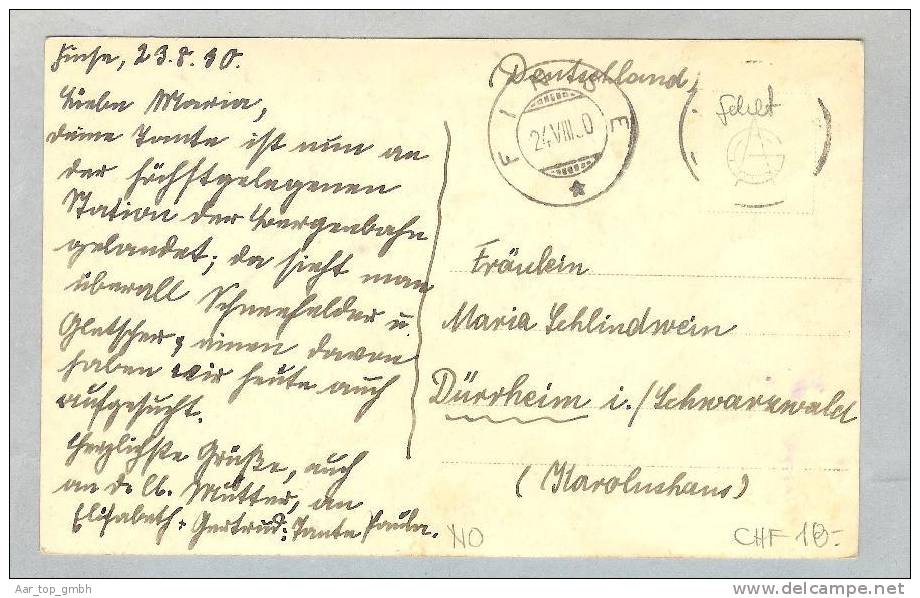 Finse, 23.8.30.
Liebe Maria,
deine Tante ist nun an
der höchstgelegenen
Station der Bergenbahn
gelandet; da sieht man
überall Schneefelder u.
Gletscher, einen davon
haben wir heute auch
aufgesucht.
Herzlichste Grüße, auch
an d. lb. Mutter, an
Elisabeth + Gertrud: Tante Paula.
Deutschland,
FINSE
24 VIII 30
Fräulein
Maria Schlindwein
Dürrheim i./Schwarzwald
(Karolushaus)
NO
CHF 10.-
Aar_top_gmbh
www.delcampe.net